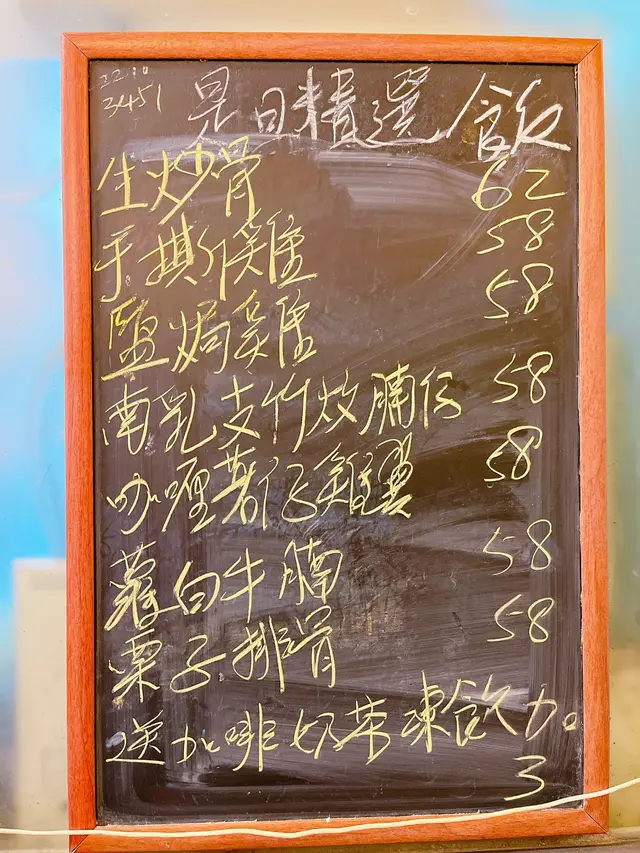 3451
是日精選飯
生炒骨 62
手撕雞 58
鹽焗雞 58
南乳支竹炆腩仔 58
咖喱薯仔雞翼 58
蘿白牛腩 58
栗子排骨 58
送咖啡奶茶凍飲加
3